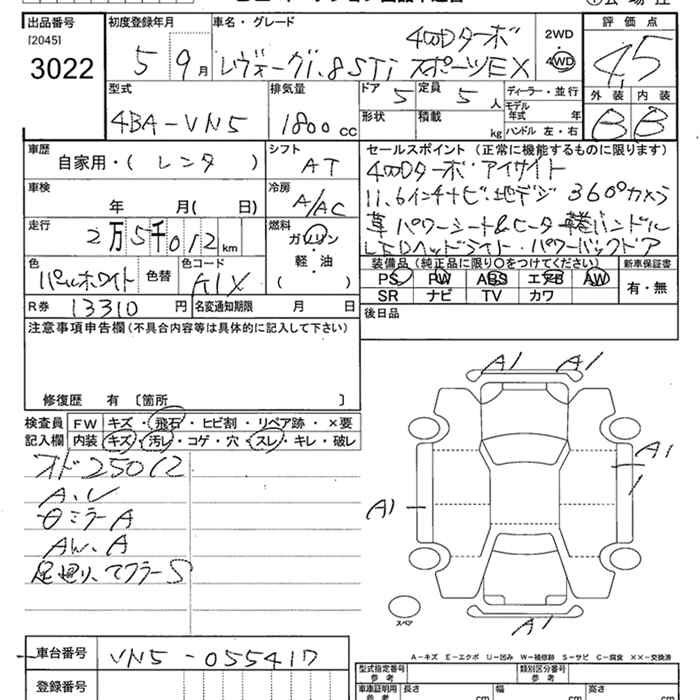 出品番号 初度登録年月 車名・グレード 評価点
[2045]
3022
5 9月
4WDターボ
レヴォーグ1.8STi スポーツEX
2WD
4WD
4.5
型式 排気量 ドア 定員 ディーラー・並行 外装 内装
4BA-VN5 1800cc 5 5人 モデル年式 年 B B
形状 積載 kg ハンドル 左・右
車歴 シフト セールスポイント(正常に機能するものに限ります)
自家用・(レンタ) AT 4WDターボ・アイサイト
車検 冷房 11.6インチナビ・地デジ 360°カメラ
年 月( 日) A/AC 革パワーシート&ヒータ 革巻ハンドル
走行 燃料 LEDヘッドライト・パワーバックドア
2万5千012km ガソリン
軽・油
( )
色 色替 色コード 装備品(純正品に限り○をつけてください) 新車保証書
パールホワイト K1X PS PW ABS エアB AW 有・無
SR ナビ TV カワ
R券 13310円 名変通知期限 月 日 後日品
注意事項申告欄(不具合内容等は具体的に記入して下さい)
修復歴 有 〔箇所 〕
検査員 FW キズ・飛石・ヒビ割・リペア跡・×要
記入欄 内装 キズ・汚レ・コゲ・穴・スレ・キレ・破レ
オド25012
A.U
ミラーA
AW.A
足廻り、マフラーS
A1 A1
A1
A1
A1
スペア
A-キズ E-エクボ U-凹み W-補修跡 S-サビ C-腐食 ××-交換済
車台番号 VN5-055417
登録番号
型式指定番号 参考 類別区分番号 参考
車庫証明用 参考 長さ cm 幅 cm 高さ cm